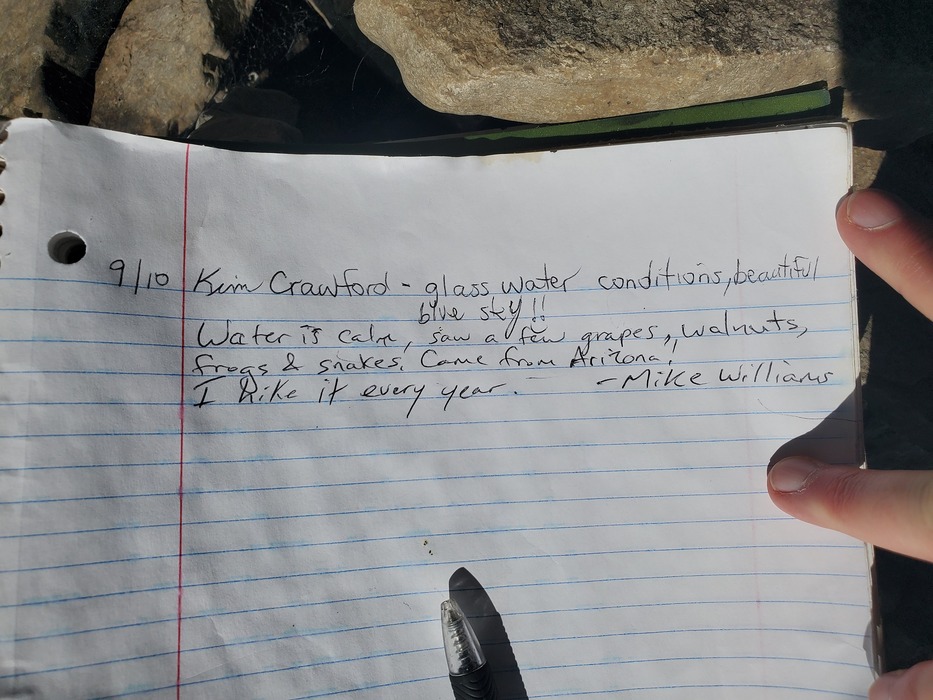 9/10 Kim Crawford - glass water conditions, beautiful
blue sky!!
Water is calm, saw a few grapes, walnuts,
frogs & snakes. Came from Arizona!
I hike it every year. - Mike Williams